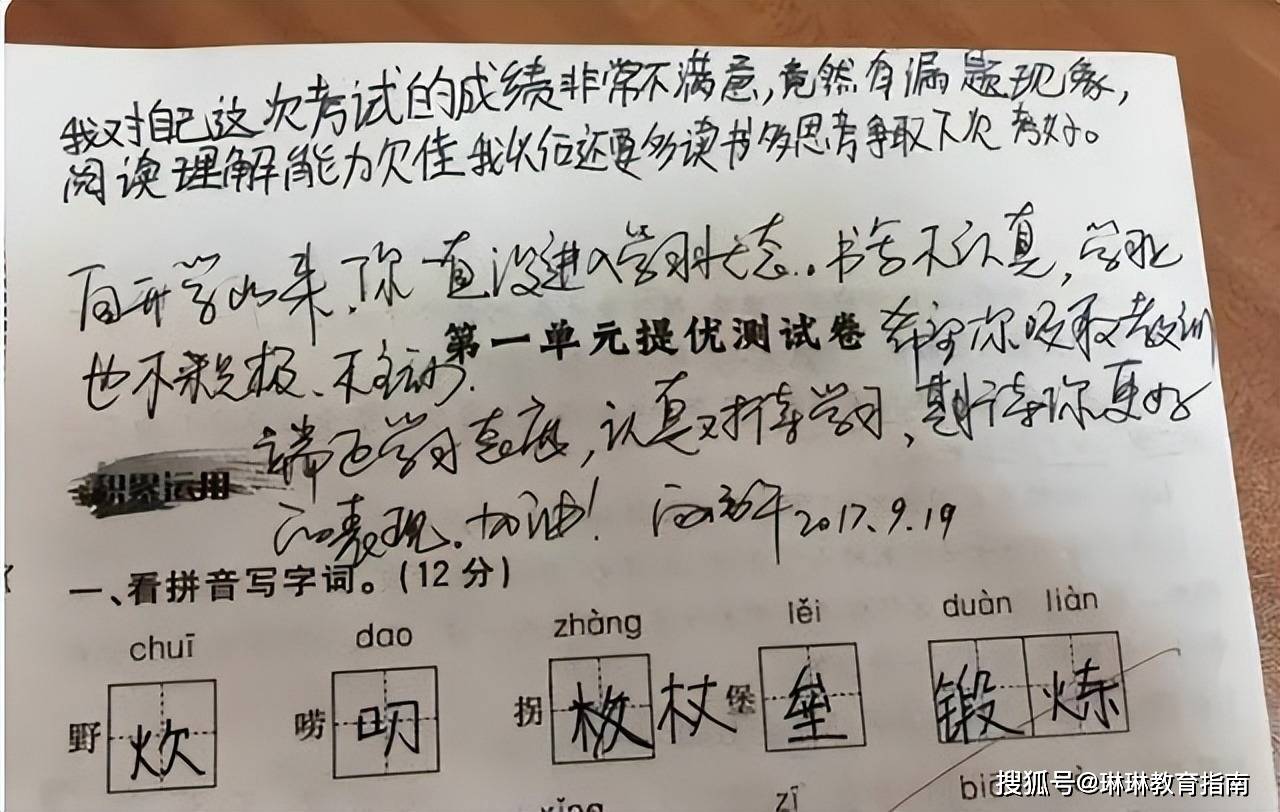 我对自己这次考试的成绩非常不满意，竟然有漏题现象，
阅读理解能力欠佳我以后还要多读书多思考争取下次考好。
自开学以来，你一直没进入学习状态。书写不认真，学习
也不积极、不主动。
第一单元提优测试卷
希望你吸取教训
端正学习态度，认真对待学习，期待你更好
的表现。加油！
2017.9.19
积累运用
一、看拼音写字词。（12分）
chuī dao zhàng lěi duàn liàn
野炊 唠叨 拐杖 堡垒 锻炼
zī
搜狐号@琳琳教育指南